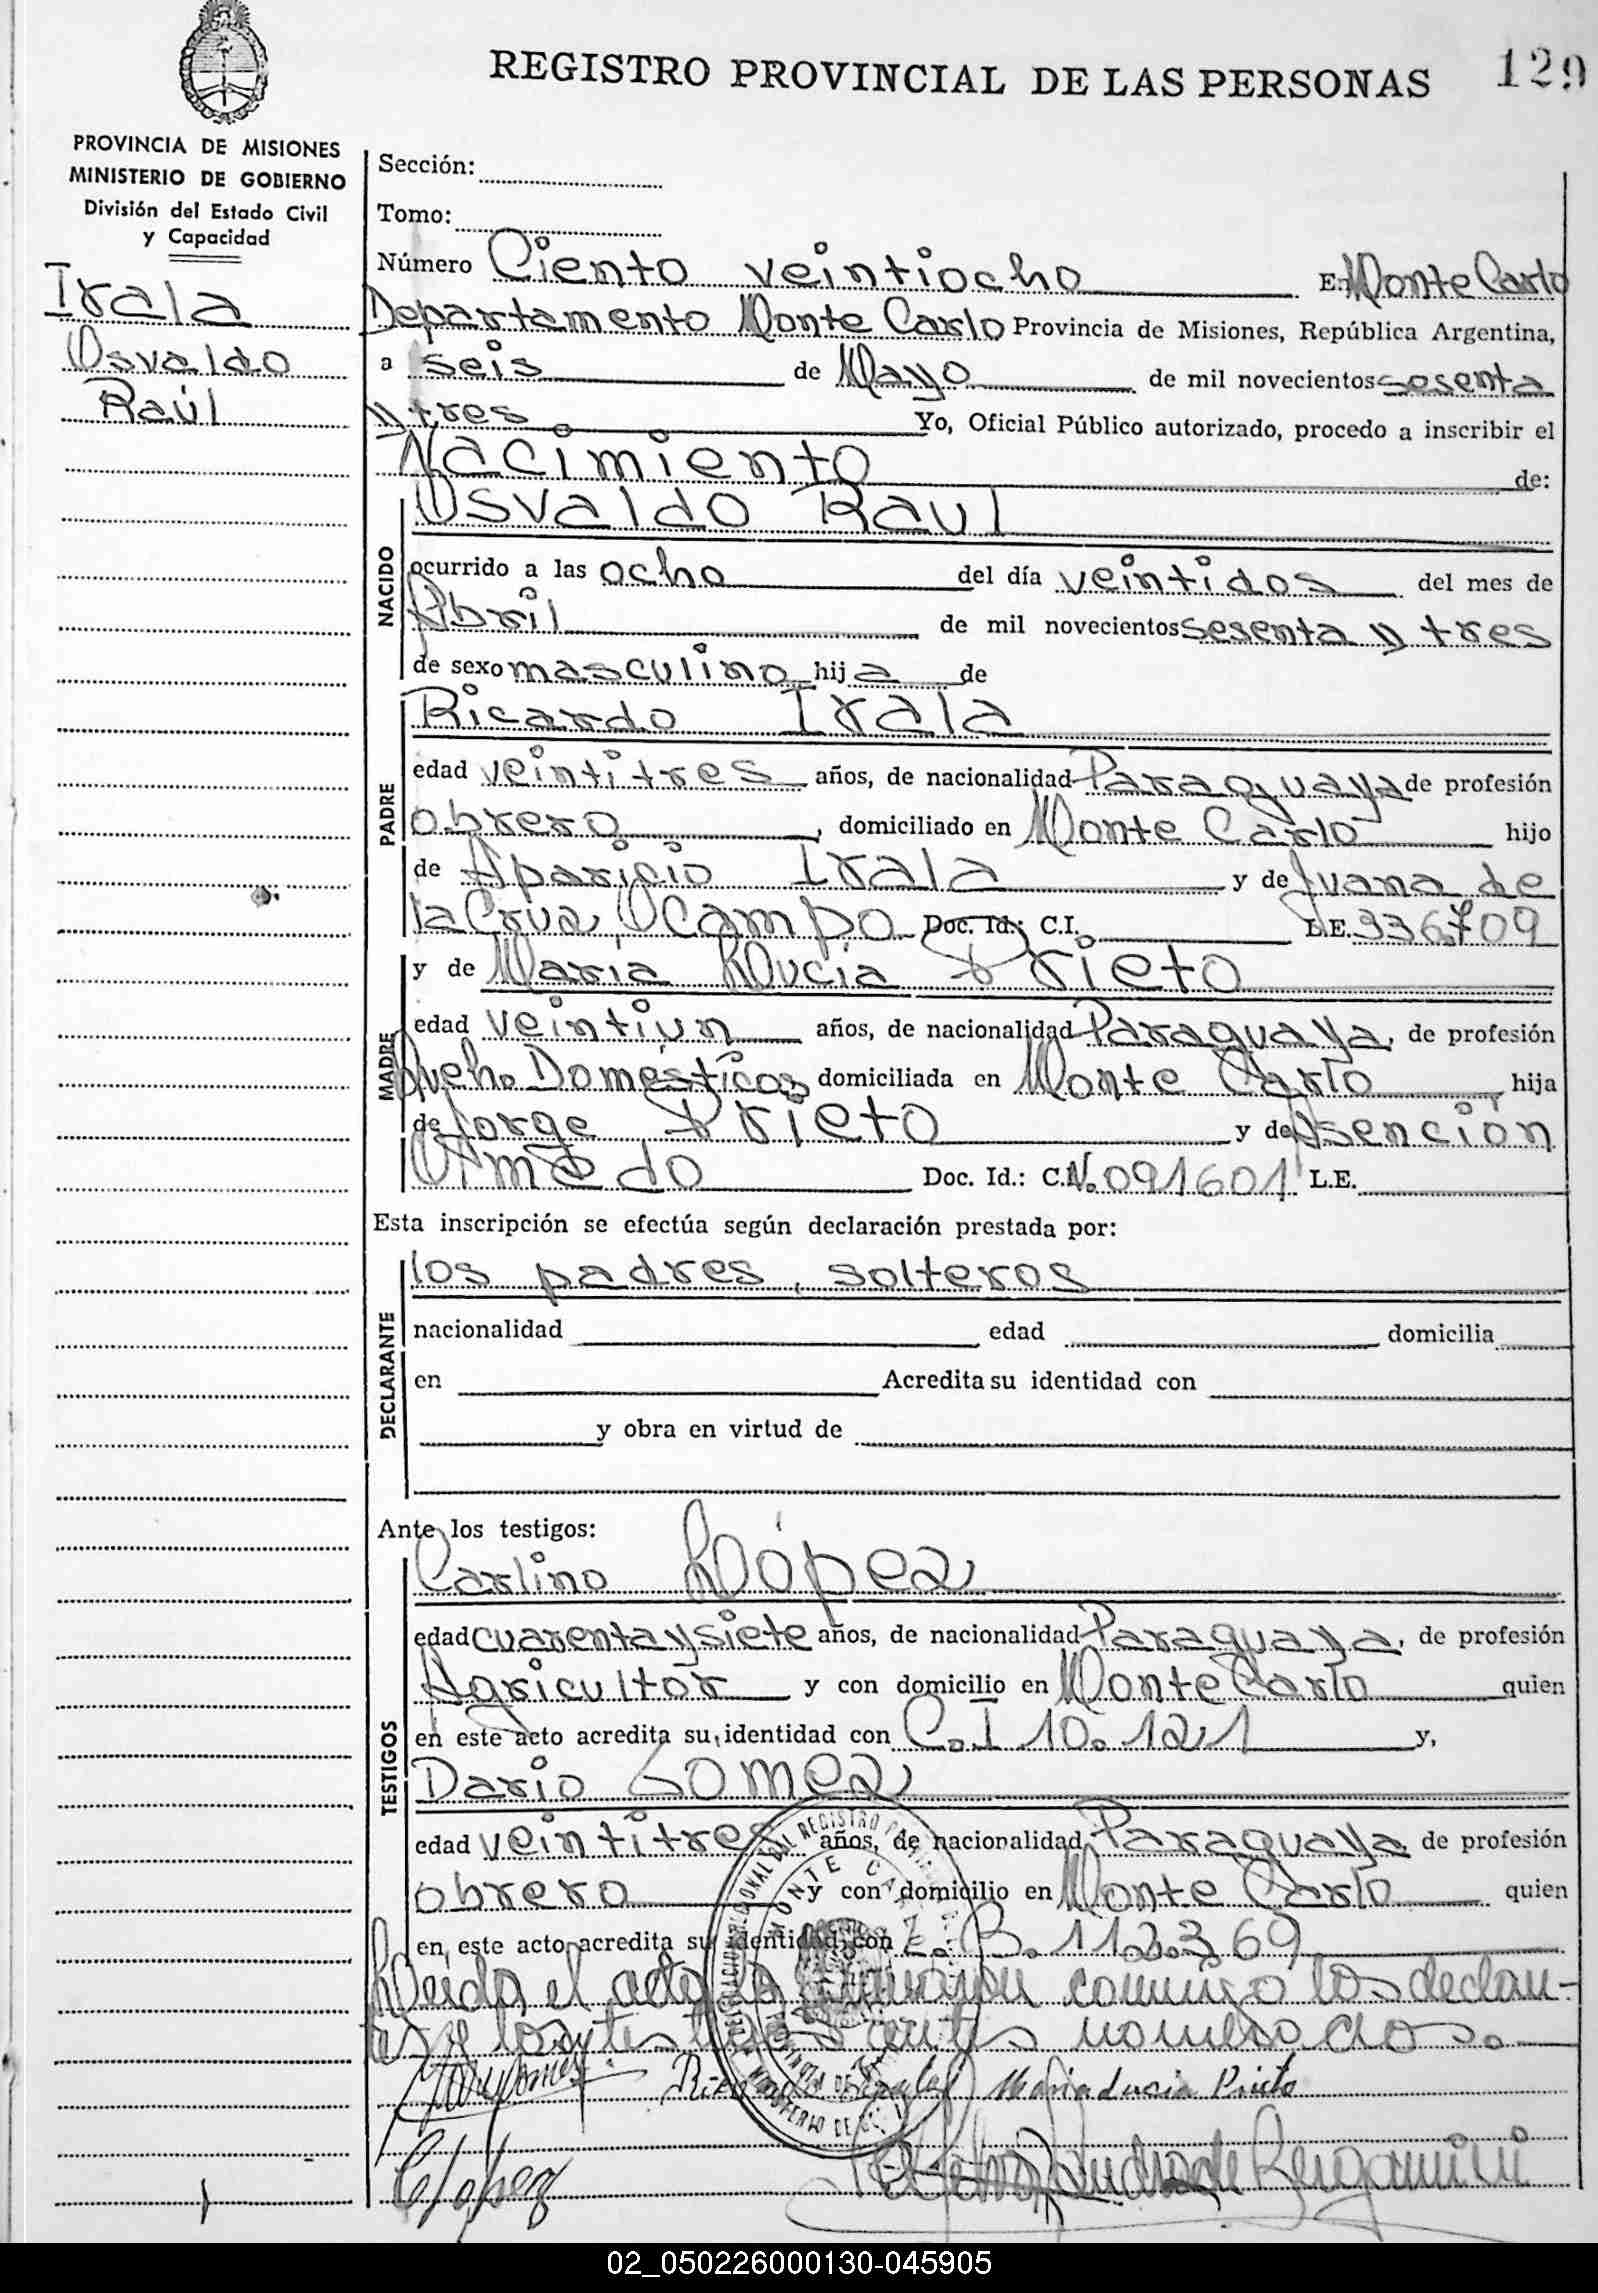 REGISTRO PROVINCIAL DE LAS PERSONAS
129
PROVINCIA DE MISIONES
MINISTERIO DE GOBIERNO
División del Estado Civil
y Capacidad
Irala
Osvaldo
Raúl
Sección:
Tomo:
Número Ciento veintiocho En Monte Carlo
Departamento Monte Carlo Provincia de Misiones, República Argentina,
a seis de Mayo de mil novecientos sesenta
y tres Yo, Oficial Público autorizado, procedo a inscribir el
Nacimiento de:
NACIDO
Osvaldo Raul
ocurrido a las ocho del día veintidos del mes de
Abril de mil novecientos sesenta y tres
de sexo masculino hij a de
PADRE
Ricardo Irala
edad veintitres años, de nacionalidad Paraguaya de profesión
obrero, domiciliado en Monte Carlo hijo
de Aparicio Irala y de Juana de
la Cruz Ocampo Doc. Id: C.I. L.E. 336.709
MADRE
y de Maria Lucia Prieto
edad veintiun años, de nacionalidad Paraguaya, de profesión
Queh. Domésticos domiciliada en Monte Carlo hija
de Jorge Prieto y de Asención
Olmedo Doc. Id.: C. N. 091601 L.E.
Esta inscripción se efectúa según declaración prestada por:
DECLARANTE
los padres, solteros
nacionalidad edad domicilia
en Acredita su identidad con
y obra en virtud de
Ante los testigos:
TESTIGOS
Carlino López
edad cuarenta y siete años, de nacionalidad Paraguaya, de profesión
Agricultor y con domicilio en Monte Carlo quien
en este acto acredita su identidad con C. I 10.121 y,
Dario Gomez
edad veintitres años, de nacionalidad Paraguaya de profesión
obrero y con domicilio en Monte Carlo quien
en este acto acredita su identidad con L. B. 112.369
Leida el acta la firman conmigo los declan-
tes y los testigos antes nombrados.
Maria Lucia Prieto
C López
de Bergamini
MONTE CARLO
02_050226000130-045905